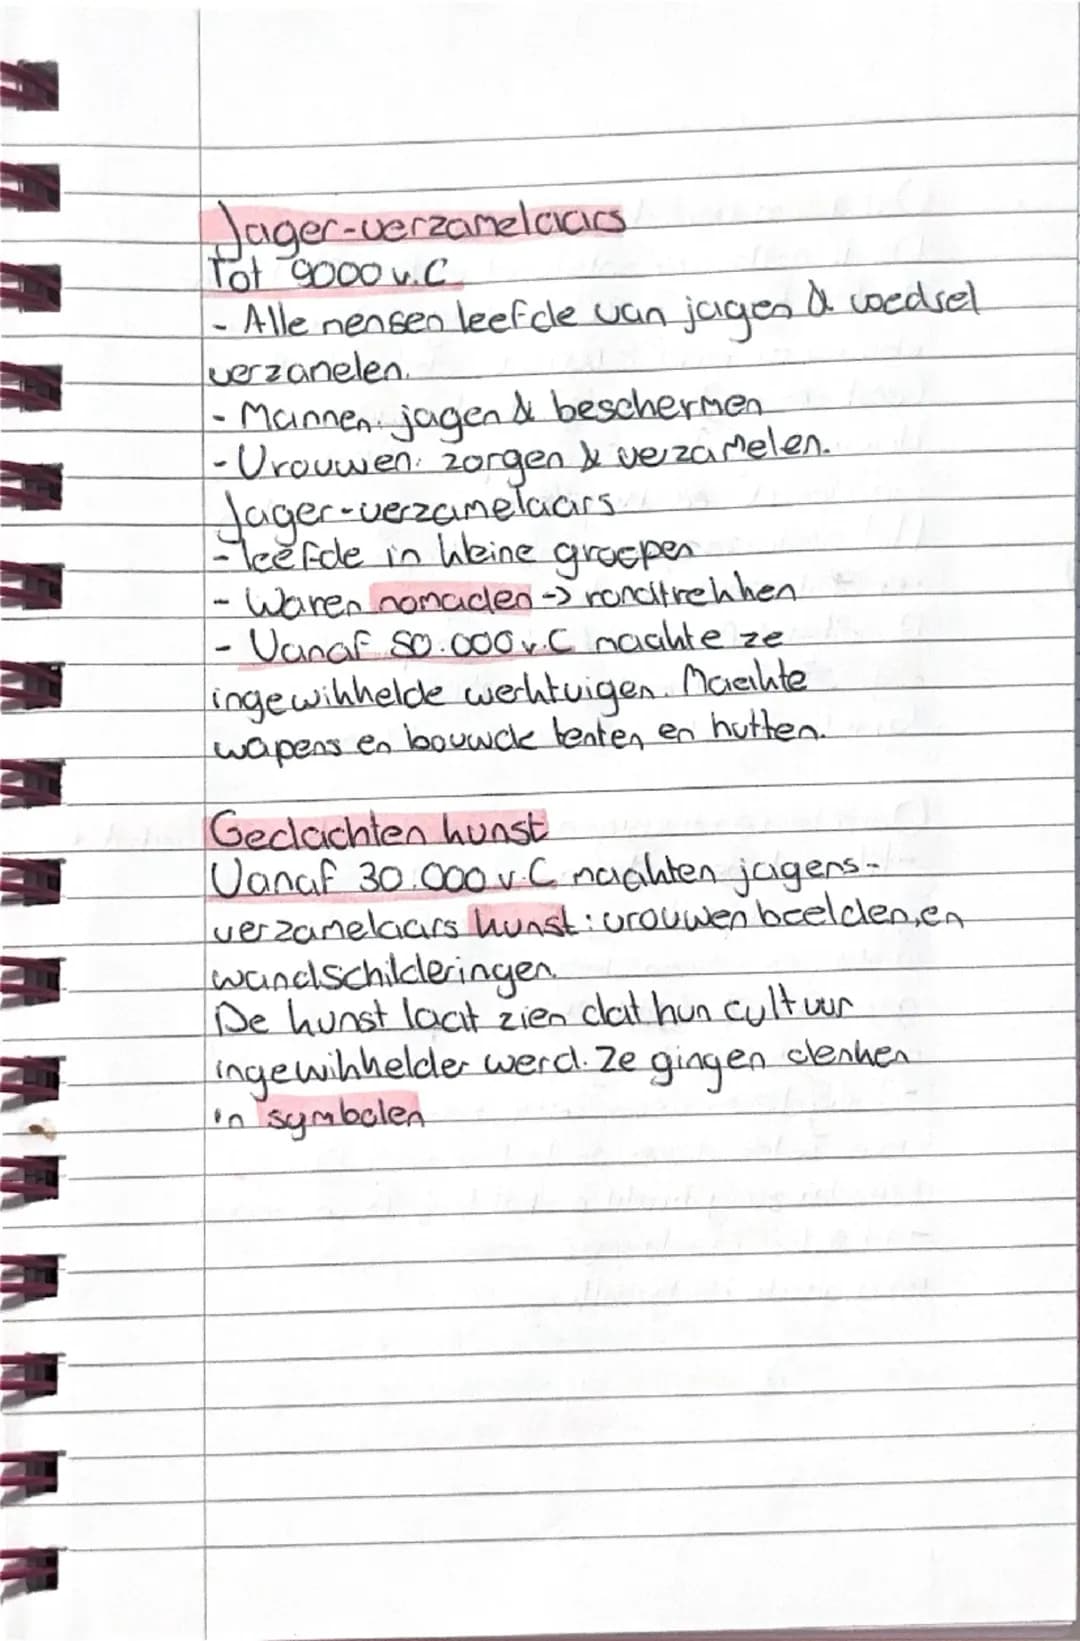 Jager-verzamelaars
Tot 9000 v.C
- Alle mensen leefde van jagen & voedsel
verzamelen.
- Mannen: jagen & beschermen
- Vrouwen: zorgen & verzamelen.
Jager-verzamelaars
- leefde in kleine groepen
- Waren nomaden -> rondtrekken
- Vanaf 50.000 v.C maakte ze
ingewikkelde werktuigen. Maakte
wapens en bouwde tenten en hutten.
Gedachten kunst
Vanaf 30.000 v.C maakten jagers-
verzamelaars kunst: vrouwenbeelden, en
wandschilderingen.
De kunst laat zien dat hun cultuur
ingewikkelder werd. Ze gingen denken
in symbolen